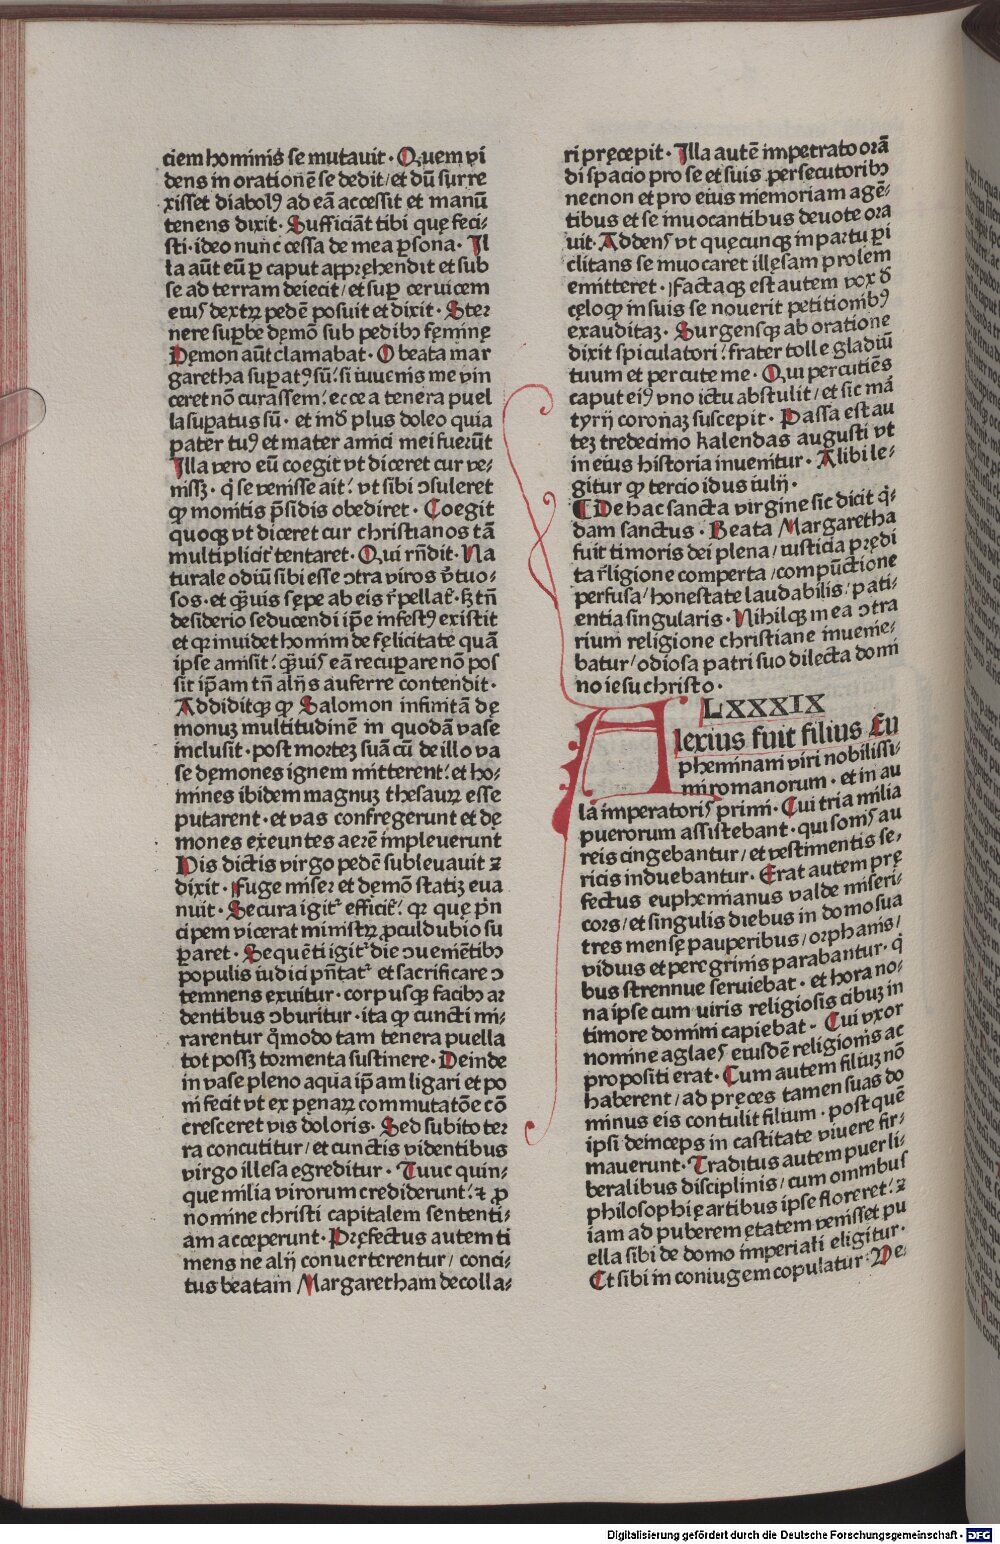 ciem hominis se mutauit · Quem vi
dens in orationē se dedit / et dū surre
xisset diabolꝰ ad eā accessit et manū
tenens dixit · Sufficiāt tibi quę feci⸗
sti · ideo nunc cessa de mea ꝑsona · Il
la aūt eū ꝑ caput apprehendit et sub
se ad terram deiecit / et suꝑ ceruicem
eiuſ dextꝝ pedē posuit et dixit · Ster
nere suꝑbe dęmō sub pedibꝫ fęminę
Dęmon aūt clamabat · O beata mar
garetha suꝑatꝰ sū · si iuuenis me vin
ceret nō curassem · ecce a tenera puel
la suꝑatus sū · et inō plus doleo quia
pater tuꝰ et mater amici mei fuerūt
Illa vero eū coegit vt diceret cur ve⸗
nissꝫ · q̇ se venisse ait · vt sibi ↄsuleret
ꝙ monitis p̄sidis obediret · Coegit
quoqꝫ vt diceret cur christianos tā
multiplicit̄ tentaret · Qui rn̄dit · Na
turale odiū sibi esse ↄtra viros v̄tuo⸗
sos · et q̈uis sępe ab eis r̄pellat̄ · sꝫ tn̄
desiderio seducendi ip̄e infestꝰ existit
et qꝛ inuidet homini de fęlicitate quā
ipse amisit · q̈uiſ eā recuꝑare nō pos
sit ip̄am tn̄ alijs auferre contendit ·
Addiditqꝫ ꝙ Salomon infinitā dę
monuꝫ multitudinē in quodā vase
inclusit · post morteꝫ suā cū de illo va
se dęmones ignem mitterent · et ho⸗
mines ibidem magnuꝫ thesauꝝ esse
putarent · et vas confregerunt et dę
mones exeuntes aerē impleuerunt
His dictis virgo pedē subleuauit ⁊
dixit · Fuge miser et dęmō statiꝫ eua
nuit · Secura igit᷑ efficit᷑ · qꝛ quę pn̄
cipem vicerat ministꝝ ꝓculdubio su
ꝑaret · Sequēti igit᷑ die ↄueniētibꝫ
populis iudici pn̄tat᷑ et sacrificare ↄ
temnens exuitur · corpusqꝫ facibꝫ ar
dentibus ↄburitur · ita ꝙ cuncti mi⸗
rarentur q̄modo tam tenera puella
tot possꝫ tormenta sustinere · Deinde
in vase pleno aqua ip̄am ligari et po
ni fecit vt ex pęnaꝝ commutatōe cō
cresceret vis doloris · Sed subito ter
ra concutitur / et cunctis videntibus
virgo illesa egreditur · Tuuc quin⸗
que milia virorum crediderunt · ⁊ ꝓ
nomine christi capitalem sententi⸗
am acceperunt · Pręfectus autem ti
mens ne alij conuerterentur / conci⸗
tus beatam Margaretham decolla⸗
ri pręcepit · Illa autē impetrato orā
di spacio pro se et suis persecutoribꝫ
necnon et pro eius memoriam agē⸗
tibus et se inuocantibus deuote ora
uit · Addenſ vt quęcunqꝫ in partu ꝑi
clitans se inuocaret illęsam prolem
emitteret · Factaqꝫ est autem vox d̄
cęloqꝫ in suis se nouerit petitionibꝰ
exauditaꝫ · Surgensqꝫ ab oratione
dixit spiculatori · frater tolle gladiū
tuum et percute me · Qui percutiēs
caput eiꝰ vno ictu abstulit / et sic mā
tyrij coronaꝫ suscepit · Passa est au
teꝫ tredecimo kalendas augusti vt
in eius historia inuenitur · Alibi le⸗
gitur ꝙ tercio idus iulij ·
De hac sancta virgine sic dicit q̇⸗
dam sanctus · Beata Margaretha
fuit timoris dei plena / iusticia prędi
ta r̄ligione comperta / compūctione
perfusa / honestate laudabilis / pati⸗
entia singularis · Nihilqꝫ in ea ↄtra
rium religione christiane inuenie⸗
batur / odiosa patri suo dilecta domi
no iesu christo ·
LXXXIX
Alexius fuit filius Eu
pheminani viri nobilissi⸗
mi romanorum · et in au
la imperatoriſ primi · Cui tria milia
puerorum assistebant · qui soniſ au
reis cingebantur / et vestimentis se⸗
ricis induebantur · Erat autem prę
fectus euphemianus valde miseri⸗
cors / et singulis diebus in domo sua
tres mensę pauperibus / orphanis /
viduis et peregrinis parabantur · q̇
bus strennue seruiebat · et hora no⸗
na ipse cum uiris religiosis cibuꝫ in
timore domini capiebat · Cui vxor
nomine aglaeſ eiusdē religionis ac
propositi erat · Cum autem filiuꝫ nō
haberent / ad pręces tamen suas do
minus eis contulit filium · post quē
ipsi deinceps in castitate viuere fir⸗
mauerunt · Traditus autem puer li⸗
beralibus disciplinis / cum omnibuſ
philosophię artibus ipse floreret · ⁊
iam ad puberem ętatem venisset pu
ella sibi de domo imperiali eligitur ·
Et sibi in coniugem copulatur · De⸗
Digitalisierung gefördert durch die Deutsche Forschungsgemeinschaft - DFG